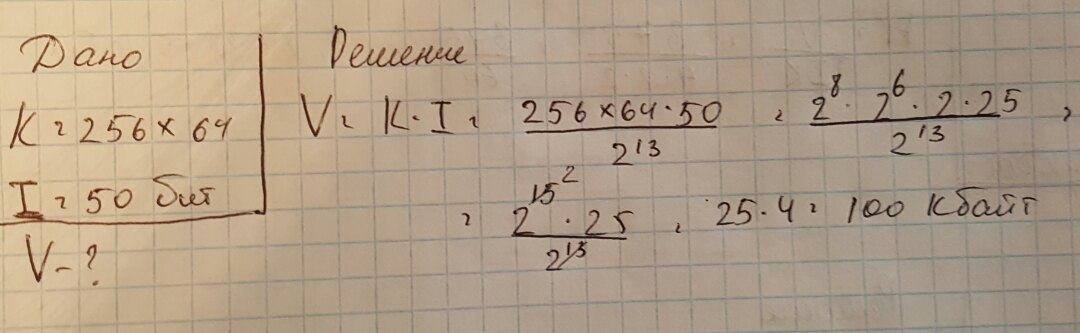 Дано
K = 256 × 64
I = 50 бит
V - ?
Решение
V = K · I = 256×64·50 / 2^13 = 2^8 · 2^6 · 2 · 25 / 2^13 =
= 2^15 2 · 25 / 2^13 = 25 · 4 = 100 Кбайт